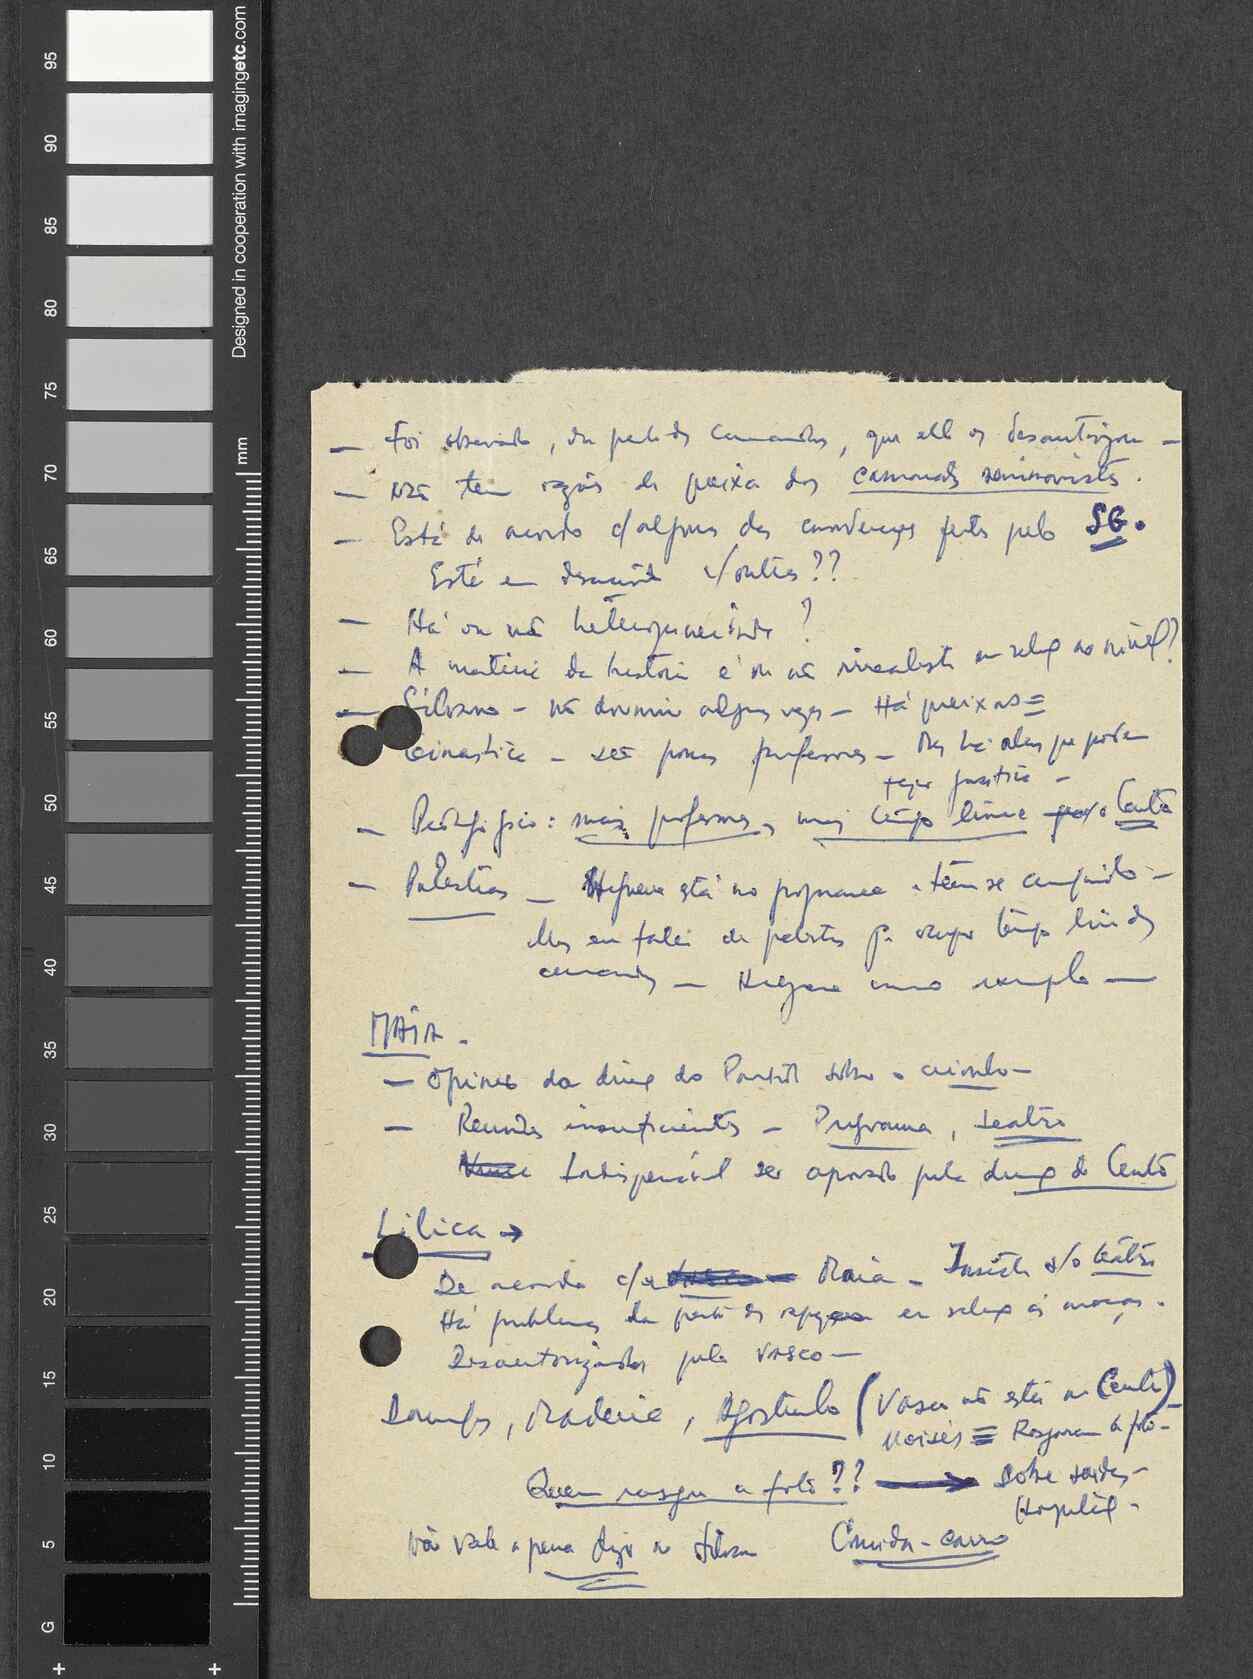 95
90
85
80
75
70
65
60
55
50
45
40
35
30
25
20
15
10
5
G
Designed in cooperation with imagingetc.com
mm
— Foi observado, da parte dos camaradas, que ele os desautorizou —
— Não tem razões de queixa dos camaradas seminaristas.
— Está de acordo c/ algumas das considerações feitas pelo SG.
Está em desacordo c/ outras??
— Há ou não heterogeneidade?
— A matéria da história é ou não irrealista em relação ao nível?
— Silvano – não dormiu algumas vezes – Há queixas =
Ginástica – são poucos professores – Mas há alunos que podem
fazer ginástica –
— Pedagógico: mais professores, mais tempo livre o Centro
— Palestras — Higiene está no programa e têm-se cumprido —
Mas eu falei de palestras p. ocupar tempo livre dos
camaradas — Higiene como exemplo —
MAIA.
— Opinião da direcção do Partido sobre o —
— Reuniões insuficientes – Programa, teatro
Indispensável ser apoiado pela direcção do Centro
Lilica →
De acordo c/ o Maia – Insiste s/o teatro
Há problemas da parte dos em relação às moças.
Desautorizados pelo Vasco —
Domingos, Madeira, Agostinho (Vasco não está no Centro)
Moisés = Rasgaram a foto –
Quem rasgou a foto?? → Sobre saídas –
Hospital –
Não vale a pena Silvano Comida – carro